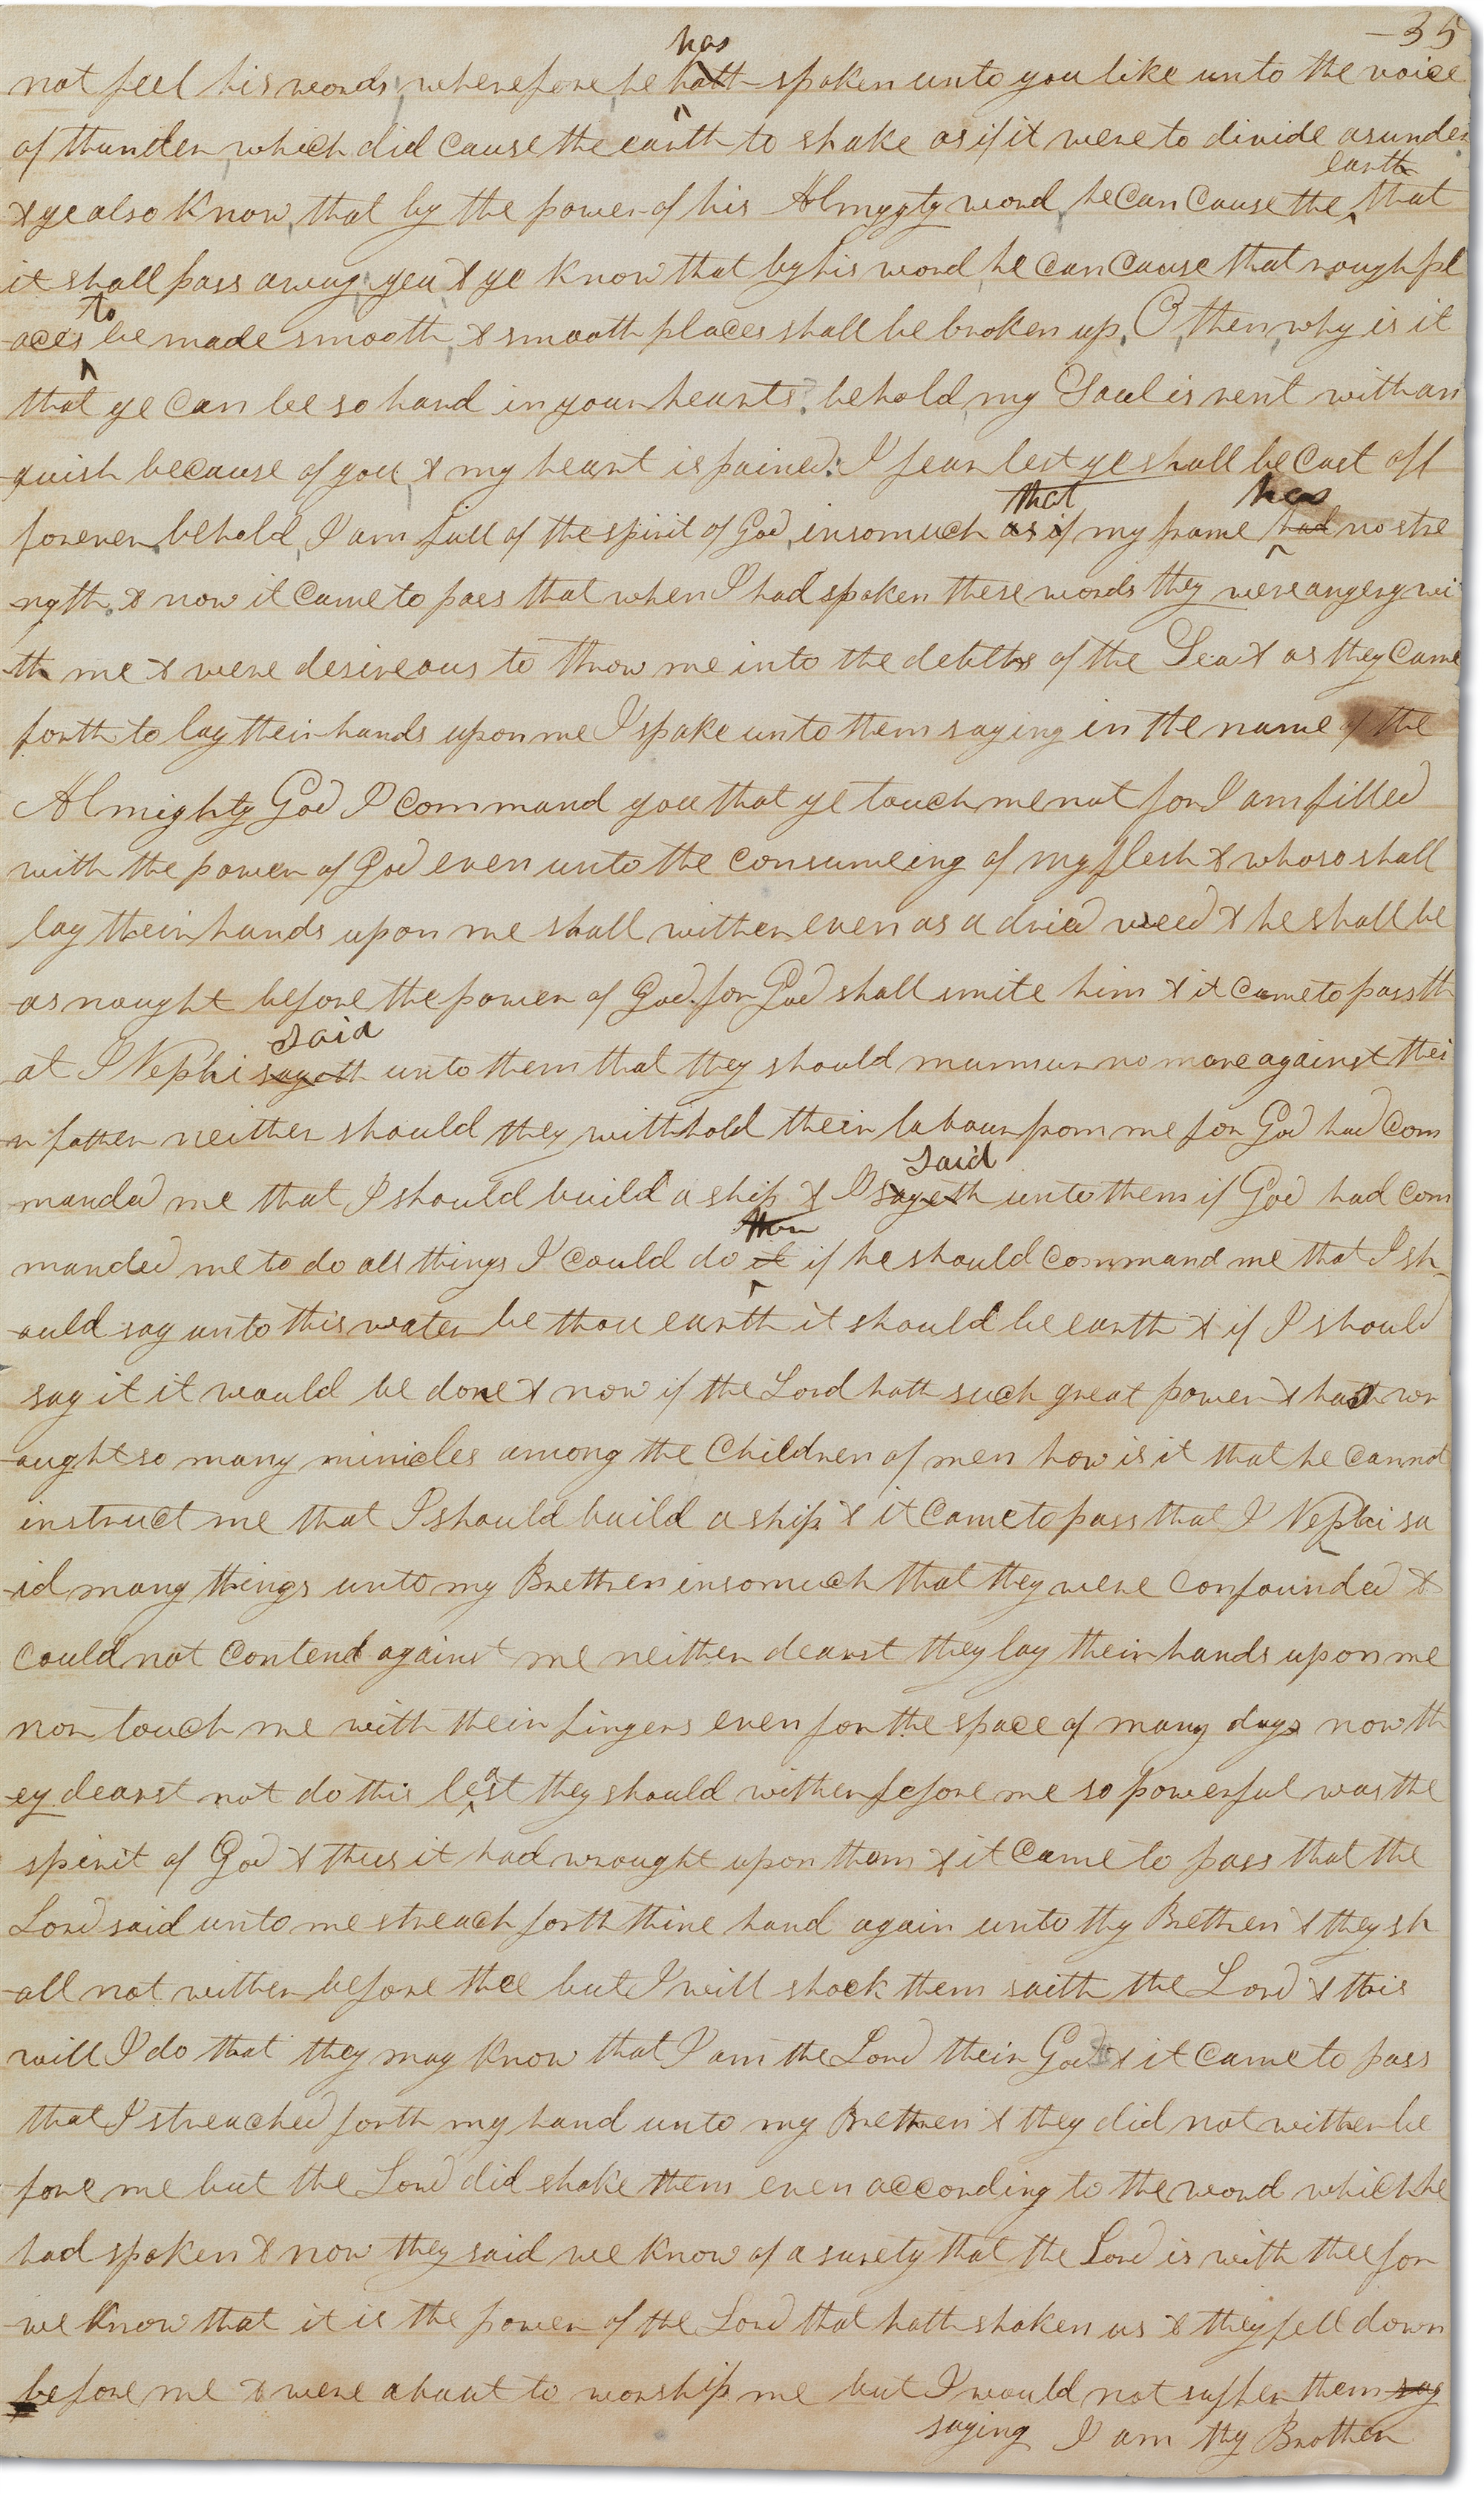 -35
has
not feel his words, wherefore, he hath spoken unto you like unto the voice
of thunder, which did cause the earth to shake as if it were to divide asunder.
earth
& ye also know, that by the power of his Almygty word, he can cause the that
it shall pass away; yea & ye know that by his word, he can cause that rough pl
to
-aces be made smooth, & smooth places shall be broken up, O, then, why is it
that ye can be so hard in your hearts? behold, my Soul is rent with an
-guish because of you, & my heart is pained: I fear lest ye shall be cast off
that has
forever, behold, I am full of the spirit of God, insomuch as if my frame had no stre
-ngth. & now it came to pass that when I had spoken these words they were angery wi
-th me & were desireous to throw me into the debths of the Sea & as they came
forth to lay their hands upon me I spake unto them saying in the name of the
Almighty God I command you that ye touch me not for I am filled
with the power of God even unto the consumeing of my flesh & whoso shall
lay their hands upon me shall wither even as a dried weed & he shall be
-as nought before the power of God. for God shall smite him & it came to pass th
said
at I Nephi sayeth unto them that they should murmur no more against thei
-r father neither should they withhold their labour from me for God had com
said
-manded me that I should build a ship & I sayeth unto them if God had com
them
manded me to do all things I could do it if he should command me that I sh
-ould say unto this water be thou earth it should be earth & if I should
say it it would be done & now if the Lord hath such great power & hath wr
-ought so many miricles among the Children of men how is it that he cannot
instruct me that I should build a ship & it came to pass that I Nephi sa
-id many things unto my Brethren insomuch that they were confounded &
could not contend against me neither dearst they lay their hands upon me
nor touch me with their fingers even for the space of many days now th
a
-ey dearst not do this lest they should wither before me so powerful was the
spirit of God & thus it had wrought upon them & it came to pass that the
Lord said unto me streach forth thine hand again unto thy Brethren & they sh
-all not wither before thee but I will shock them saith the Lord & this
will I do that they may know that I am the Lord their God & it came to pass
that I streached forth my hand unto my Brethren & they did not wither be
fore me but the Lord did shake them even according to the word which he
had spoken & now they said we know of a surety that the Lord is with thee for
-we know that it is the power of the Lord that hath shaken us & they fell down
before me & were about to worship me but I would not suffer them say
saying I am thy Brother